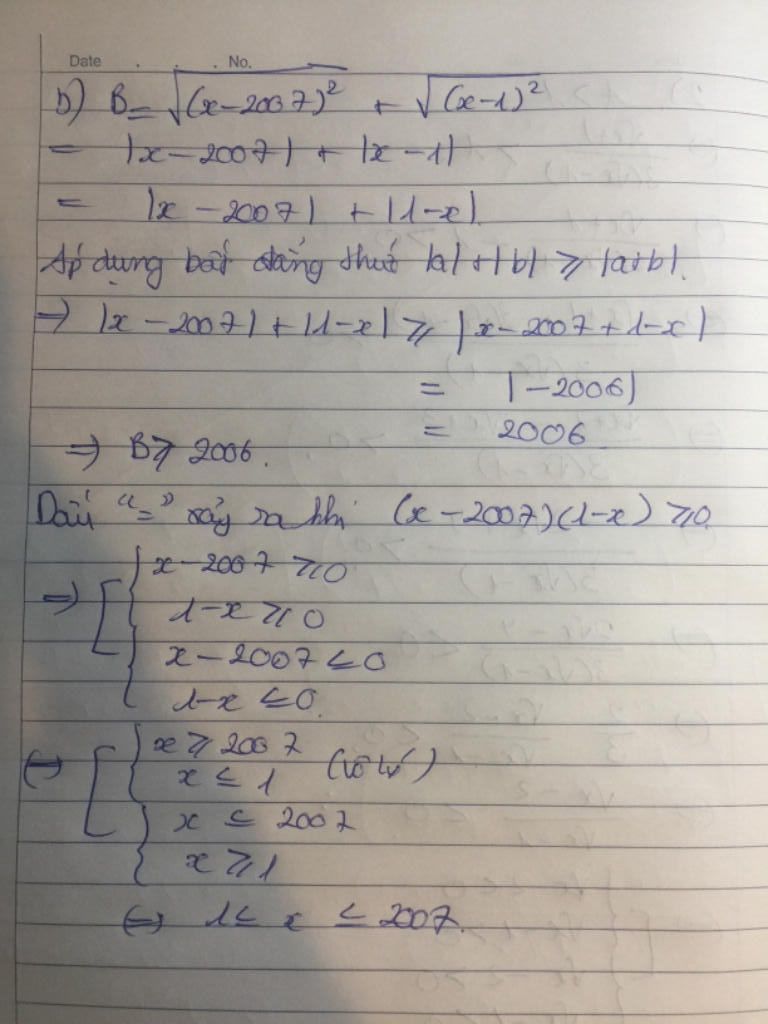 Date . . . No.
b) B = √(x-2007)² + √(x-1)²
= |x-2007| + |x-1|
= |x-2007| + |1-x|.
Áp dụng bất đẳng thức |a|+|b| ≥ |a+b|.
⇒ |x-2007| + |1-x| ≥ |x-2007+1-x|
= |-2006|
= 2006
⇒ B ≥ 2006.
Dấu "=" xảy ra khi (x-2007)(1-x) ≥ 0
⇒ [ { x-2007 ≥ 0
1-x ≥ 0
{ x-2007 ≤ 0
1-x ≤ 0.
⇔ [ { x ≥ 2007
x ≤ 1 (vô lý)
{ x ≤ 2007
x ≥ 1
⇔ 1 ≤ x ≤ 2007.